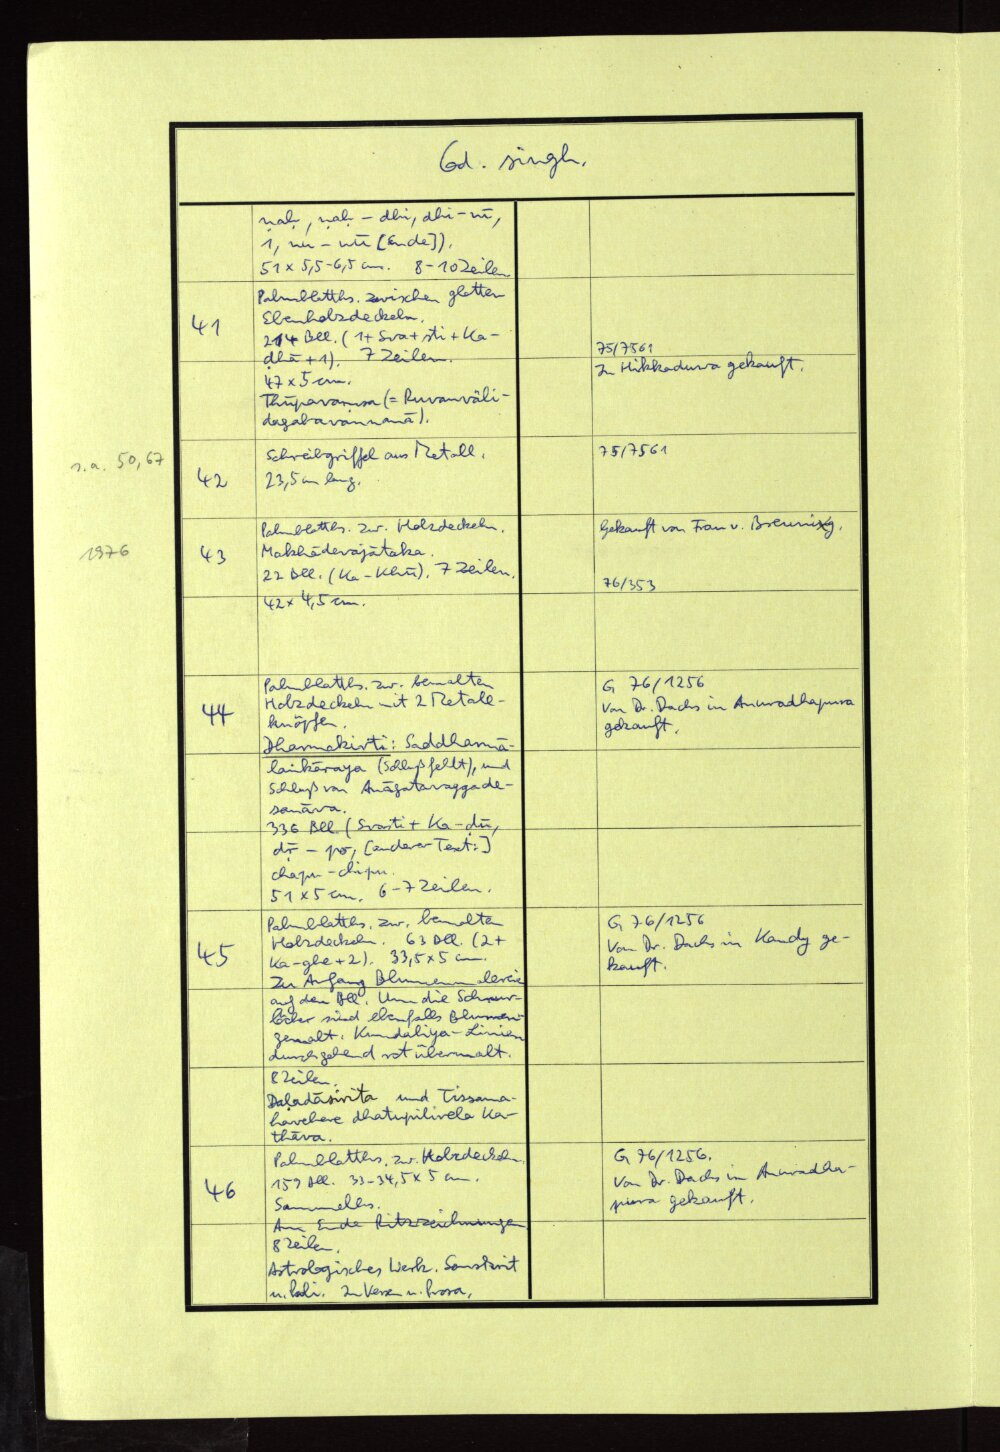 Cod. singh.
ṇaḥ, ṇaḥ – dhi, dhi – nī,
1, nu – nū [Ende]).
51 x 5,5-6,5 cm. 8-10 Zeilen
41
Palmblatths. zwischen glatten
Ebenholzdeckeln.
214 Bll. (1 + Sva + sti + Ka-
ḍhā + 1). 7 Zeilen.
47 x 5 cm.
Thūpavaṃsa (= Ruvanväli-
dagabavaṇṇanā).
75/7561
In Hikkaduwa gekauft.
s.a. 50, 67
42
Schreibgriffel aus Metall.
23,5 cm lang.
75/7561
1976
43
Palmblatths. zw. Holzdeckeln.
Makhādevajātaka.
22 Bll. (Ka – Khū). 7 Zeilen.
42 x 4,5 cm.
Gekauft von Frau v.
76/353
44
Palmblatths. zw. bemalten
Holzdeckeln mit 2 Metall-
knöpfen.
Dharmakirti: Saddharmā-
laṅkāraya (Schluß fehlt), und
Schluß von Anāgatavaggade-
sanāva.
336 Bll. (Svasti + Ka – ḍū,
– po, [anderer Text:]
chapu – chipu.
51 x 5 cm. 6-7 Zeilen.
G 76/1256
Von Dr. Dachs in Anuradhapura
gekauft.
45
Palmblatths. zw. bemalten
Holzdeckeln. 63 Bll. (2 +
Ka – ghe + 2). 33,5 x 5 cm.
Zu Anfang Blumenmalereien
auf den Bll. Um die Schnur-
löcher sind ebenfalls Blumen
gemalt. Kundaliya-Linien
durchgehend rot übermalt.
8 Zeilen.
Daḷadāsirita und Tissama-
havehere dhatupilivela Ka-
thāva.
G 76/1256
Von Dr. Dachs in Kandy ge-
kauft.
46
Palmblatths. zw. Holzdeckeln.
159 Bll. 33-34,5 x 5 cm.
Sammelhs.
Am Ende Ritzzeichnungen
8 Zeilen.
Astrologisches Werk. Sanskrit
u. Pali. In Versen u. Prosa.
G 76/1256.
Von Dr. Dachs in Anuradha-
pura gekauft.